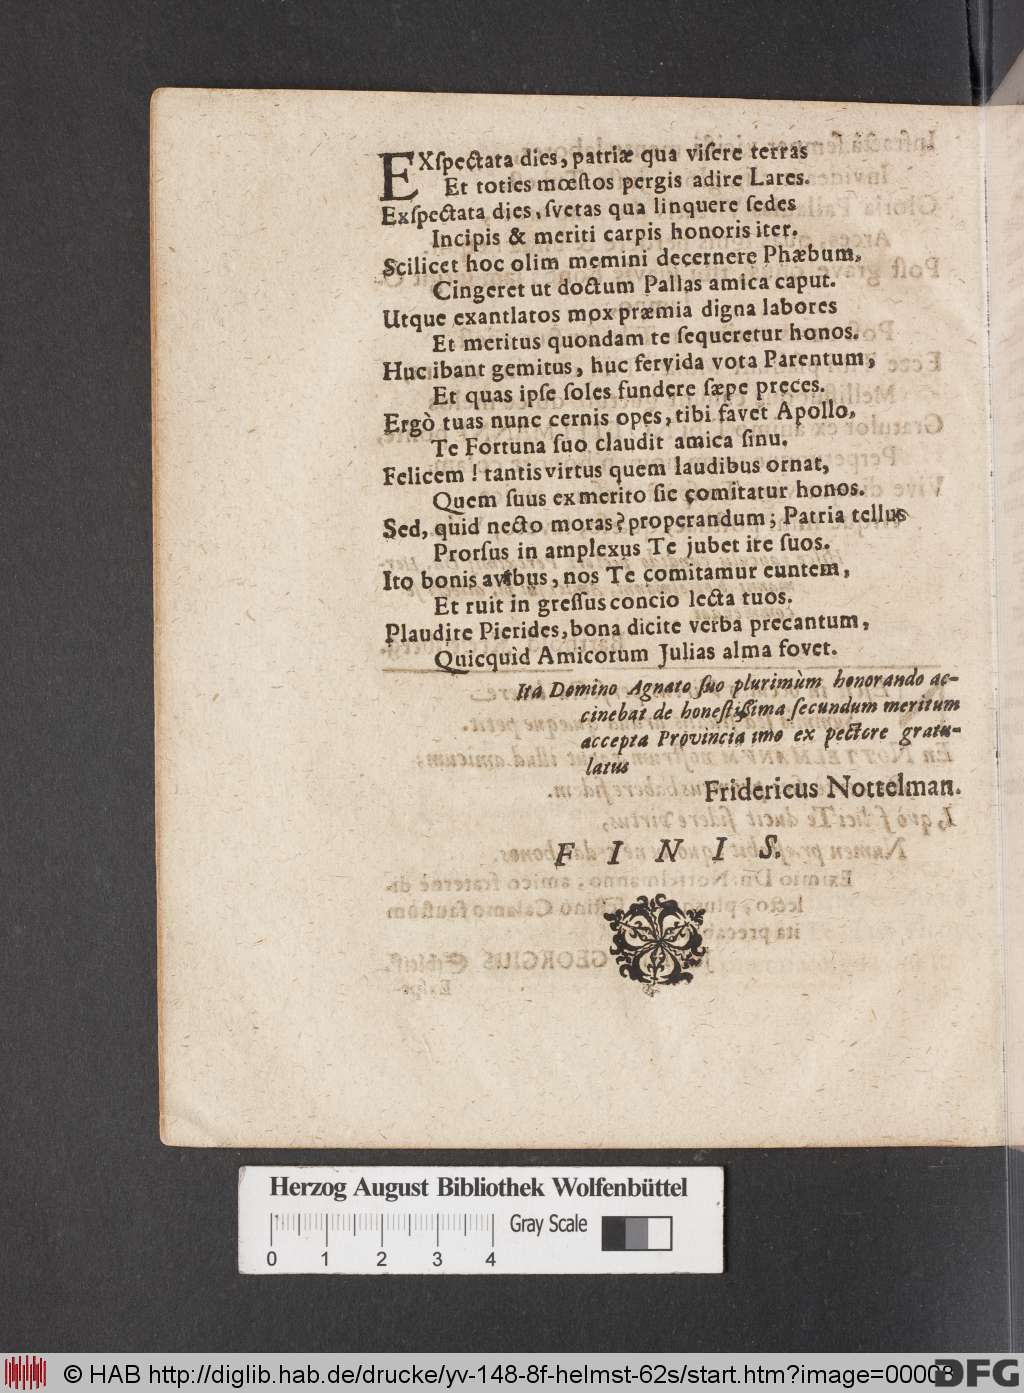 EXſpectata dies, patriæ qua viſere terras
Et toties mœſtos pergis adire Lares.
Exſpectata dies, ſvetas qua linquere ſedes
Incipis & meriti carpis honoris iter.
Scilicet hoc olim memini decernere Phæbum,
Cingeret ut doctum Pallas amica caput.
Utque exantlatos mox præmia digna labores
Et meritus quondam te ſequeretur honos.
Huc ibant gemitus, huc fervida vota Parentum,
Et quas ipſe ſoles fundere ſæpe preces.
Ergò tuas nunc cernis opes, tibi favet Apollo,
Te Fortuna ſuo claudit amica ſinu.
Felicem ! tantis virtus quem laudibus ornat,
Quem ſuus ex merito ſic comitatur honos.
Sed, quid necto moras? properandum; Patria tellus
Prorſus in amplexus Te jubet ire ſuos.
Ito bonis avibus, nos Te comitamur euntem,
Et ruit in greſſus concio lecta tuos.
Plaudite Pierides, bona dicite verba precantum,
Quicquid Amicorum Julias alma fovet.
Ita Domino Agnato ſuo plurimùm honorando ac-
cinebat de honeſtiſſima ſecundum meritum
accepta Provincia imo ex pectore gratu-
latus
Fridericus Nottelman.
FINIS.
Herzog August Bibliothek Wolfenbüttel
Gray Scale
0 1 2 3 4
© HAB http://diglib.hab.de/drucke/yv-148-8f-helmst-62s/start.htm?image=00008
DFG